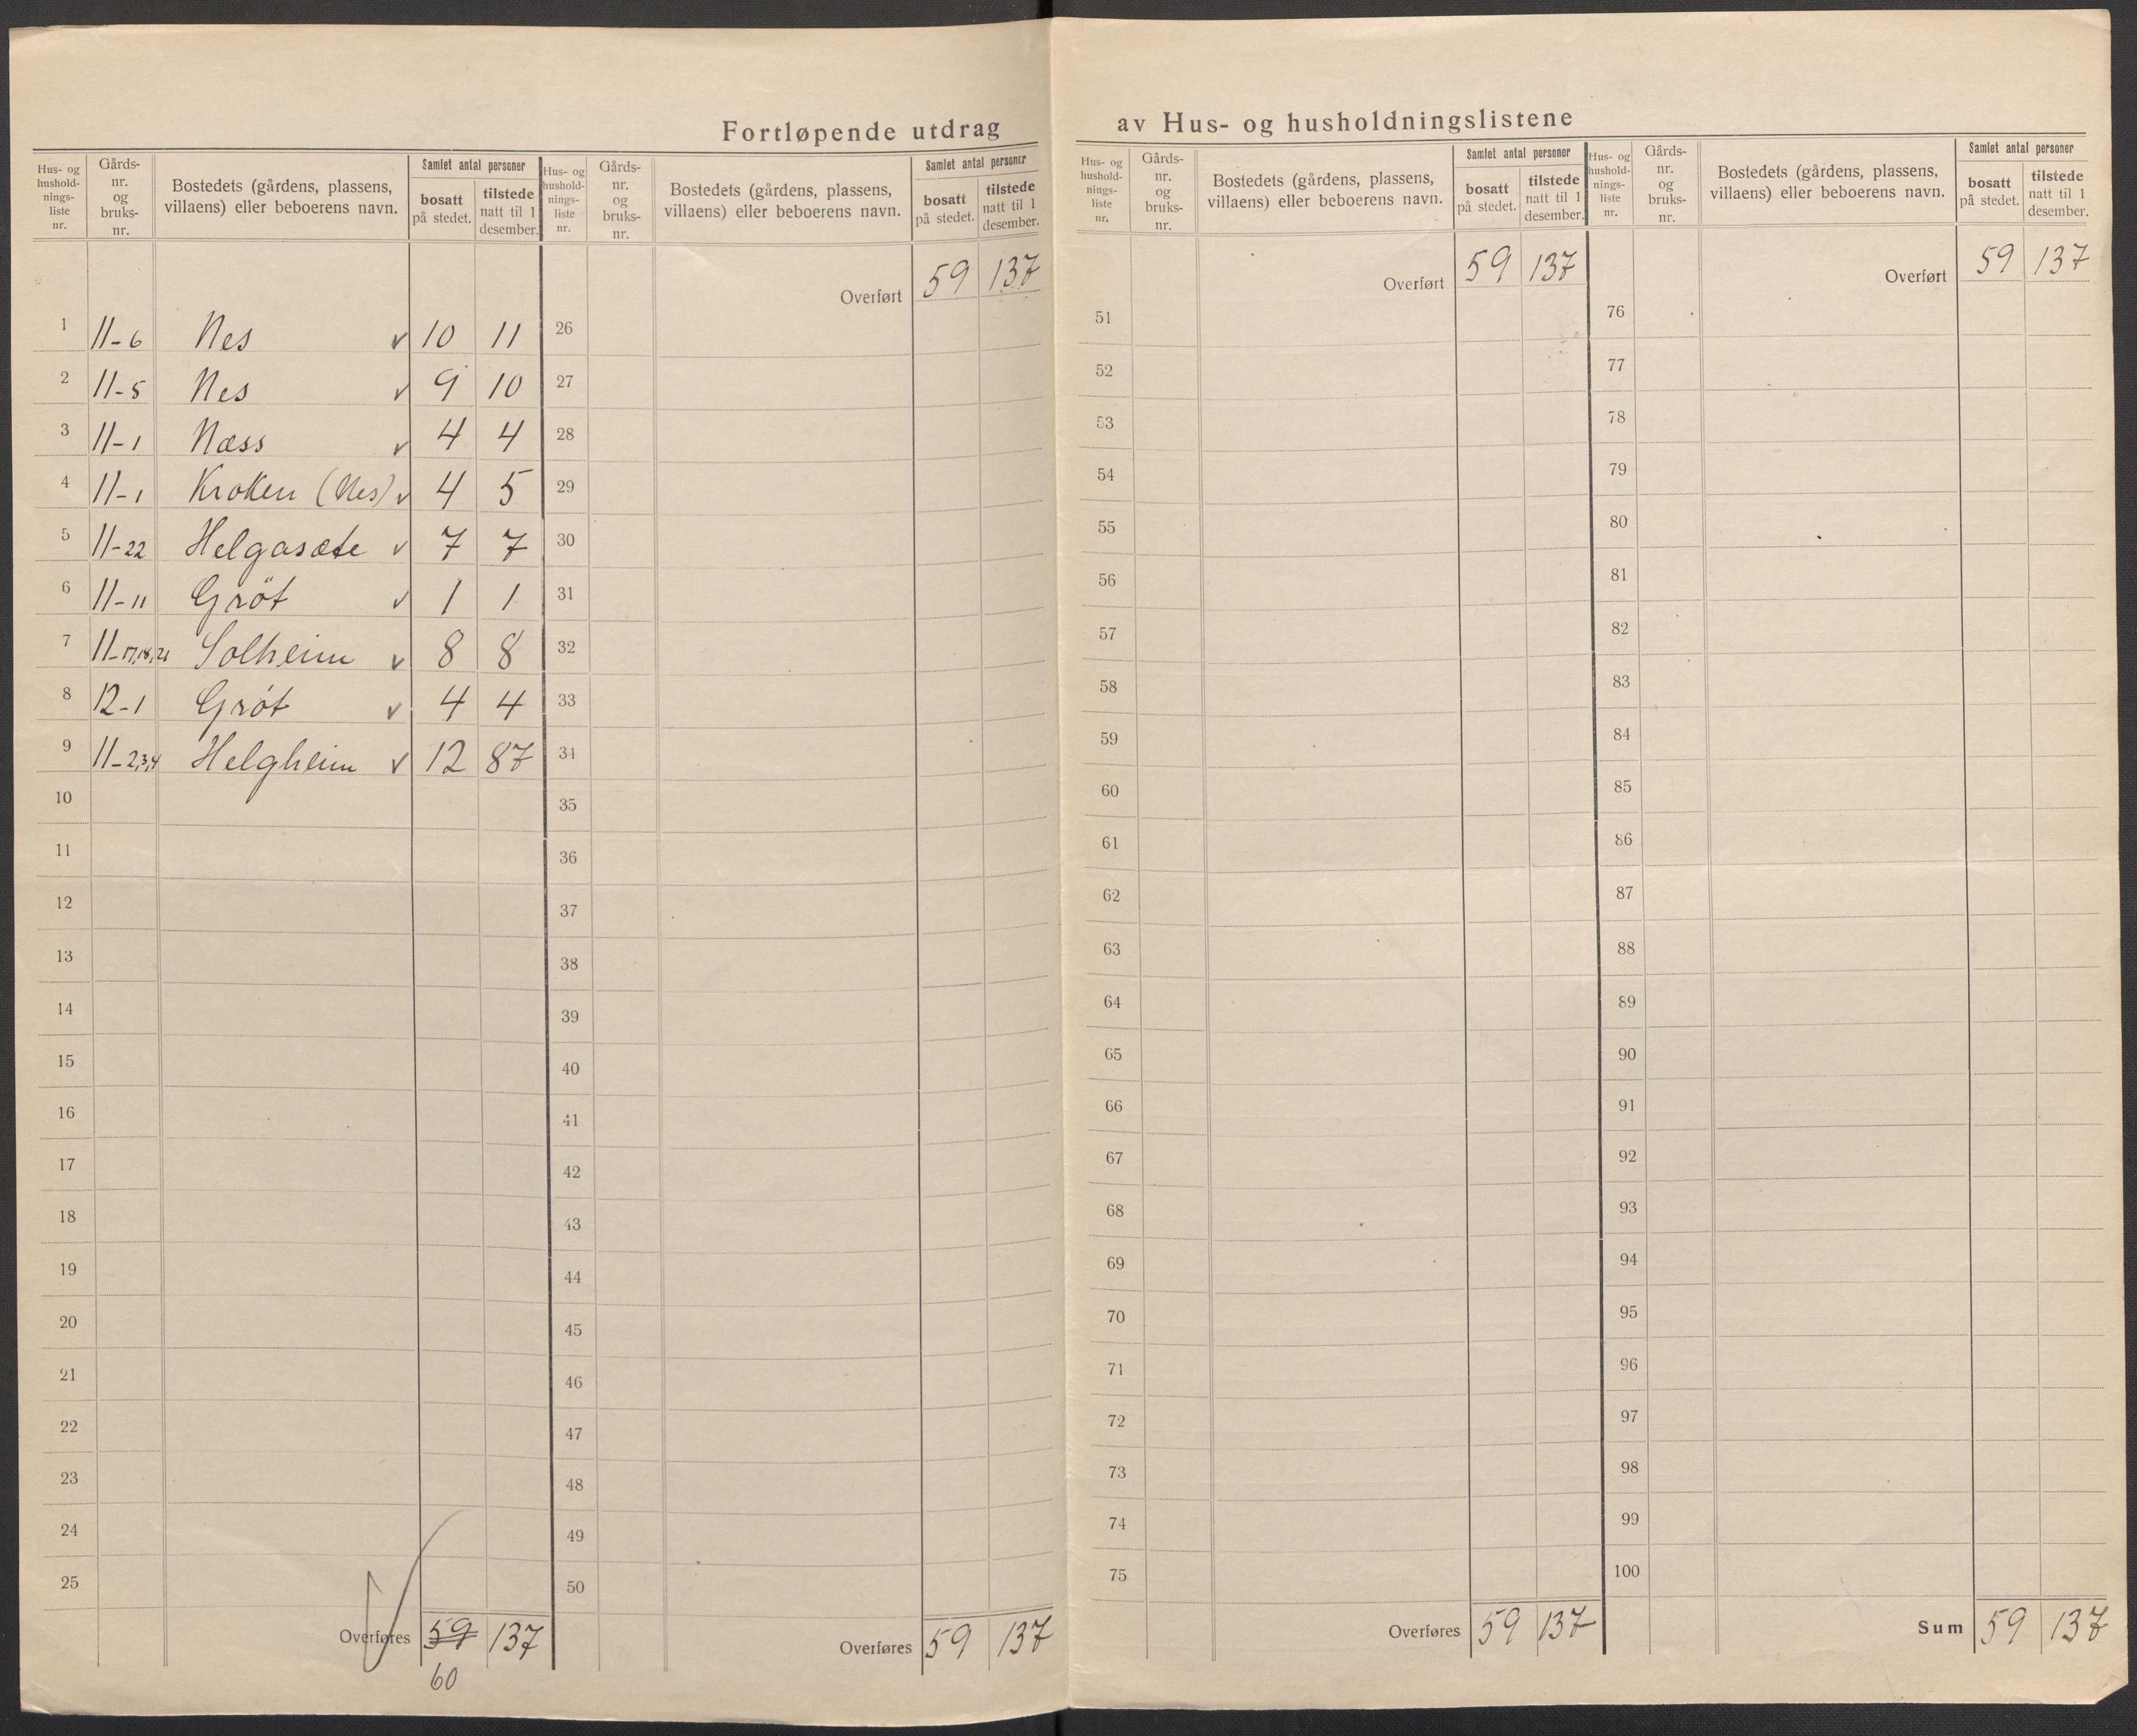 Fortløpende utdrag av Hus- og husholdningslistene
Hus- og hushold-nings-liste nr. Gårds-nr. og bruks-nr. Bostedets (gårdens, plassens, villaens) eller beboerens navn. Samlet antal personer bosatt på stedet. tilstede natt til 1 desember.
1 11-6 Nes v 10 11
2 11-5 Nes v 9 10
3 11-1 Næss v 4 4
4 11-1 Kroken (Nes) v 4 5
5 11-22 Helgasæte v 7 7
6 11-11 Gröt v 1 1
7 11-17,18,21 Solheim v 8 8
8 12-1 Gröt v 4 4
9 11-2,3,4 Helgheim v 12 87
10
11
12
13
14
15
16
17
18
19
20
21
22
23
24
25
Overføres 59 137
60
Hus- og hushold-nings-liste nr. Gårds-nr. og bruks-nr. Bostedets (gårdens, plassens, villaens) eller beboerens navn. Samlet antal personer bosatt på stedet. tilstede natt til 1 desember.
Overført 59 137
26
27
28
29
30
31
32
33
34
35
36
37
38
39
40
41
42
43
44
45
46
47
48
49
50
Overføres 59 137
Hus- og hushold-nings-liste nr. Gårds-nr. og bruks-nr. Bostedets (gårdens, plassens, villaens) eller beboerens navn. Samlet antal personer bosatt på stedet. tilstede natt til 1 desember.
Overført 59 137
51
52
53
54
55
56
57
58
59
60
61
62
63
64
65
66
67
68
69
70
71
72
73
74
75
Overføres 59 137
Hus- og hushold-nings-liste nr. Gårds-nr. og bruks-nr. Bostedets (gårdens, plassens, villaens) eller beboerens navn. Samlet antal personer bosatt på stedet. tilstede natt til 1 desember.
Overført 59 137
76
77
78
79
80
81
82
83
84
85
86
87
88
89
90
91
92
93
94
95
96
97
98
99
100
Sum 59 137